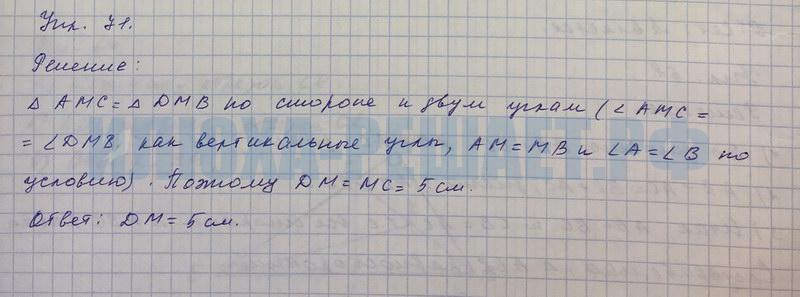 Упр. 71.
Решение:
△ AMC = △ DMB по стороне и двум углам (∠ AMC =
= ∠DMB, как вертикальные углы, AM = MB и ∠A = ∠B по
условию). Поэтому DM = MC = 5 см.
Ответ: DM = 5 см.